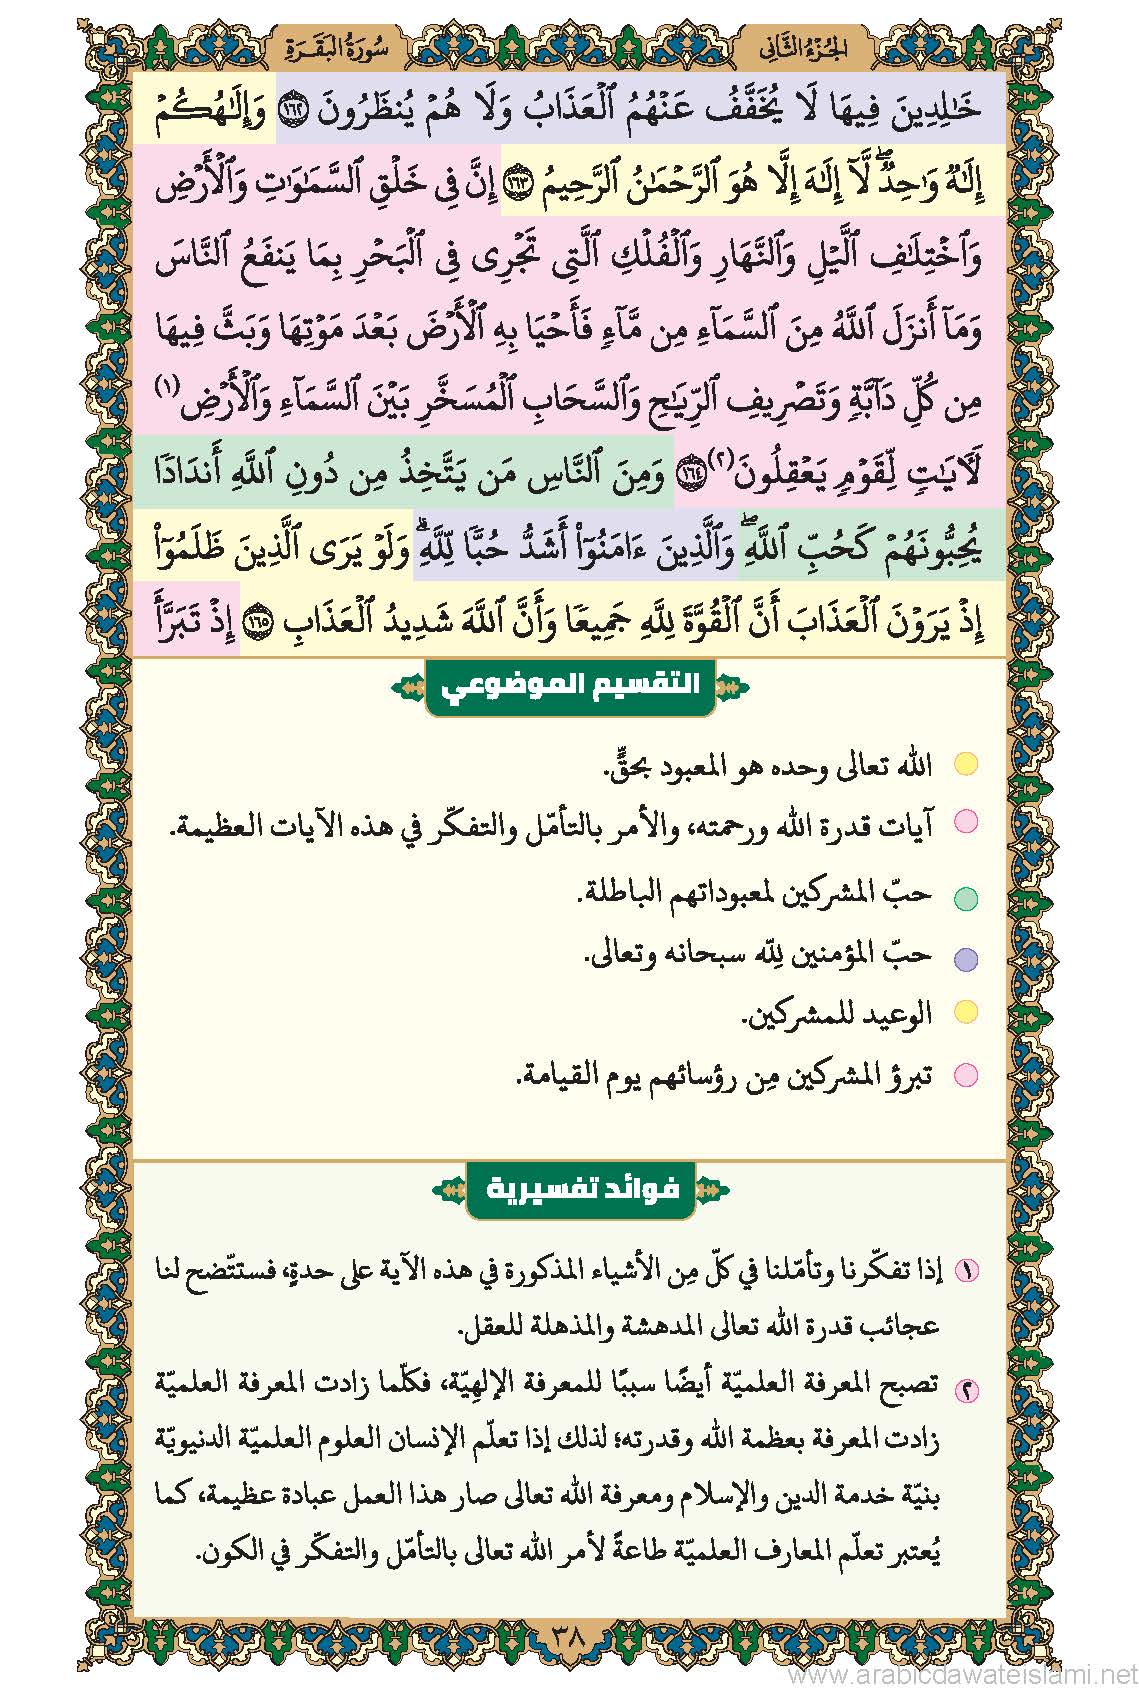 الجُزْءُ الثَّانِى
سُورَةُ البَقَرَةِ
خَٰلِدِينَ فِيهَا لَا يُخَفَّفُ عَنْهُمُ ٱلْعَذَابُ وَلَا هُمْ يُنظَرُونَ ١٦٢ وَإِلَٰهُكُمْ
إِلَٰهٌ وَٰحِدٌ ۖ لَّآ إِلَٰهَ إِلَّا هُوَ ٱلرَّحْمَٰنُ ٱلرَّحِيمُ ١٦٣ إِنَّ فِى خَلْقِ ٱلسَّمَٰوَٰتِ وَٱلْأَرْضِ
وَٱخْتِلَٰفِ ٱلَّيْلِ وَٱلنَّهَارِ وَٱلْفُلْكِ ٱلَّتِى تَجْرِى فِى ٱلْبَحْرِ بِمَا يَنفَعُ ٱلنَّاسَ
وَمَآ أَنزَلَ ٱللَّهُ مِنَ ٱلسَّمَآءِ مِن مَّآءٍ فَأَحْيَا بِهِ ٱلْأَرْضَ بَعْدَ مَوْتِهَا وَبَثَّ فِيهَا
مِن كُلِّ دَآبَّةٍ وَتَصْرِيفِ ٱلرِّيَٰحِ وَٱلسَّحَابِ ٱلْمُسَخَّرِ بَيْنَ ٱلسَّمَآءِ وَٱلْأَرْضِ (١)
لَءَايَٰتٍ لِّقَوْمٍ يَعْقِلُونَ (٢) ١٦٤ وَمِنَ ٱلنَّاسِ مَن يَتَّخِذُ مِن دُونِ ٱللَّهِ أَندَادًا
يُحِبُّونَهُمْ كَحُبِّ ٱللَّهِ ۖ وَٱلَّذِينَ ءَامَنُوٓا۟ أَشَدُّ حُبًّا لِّلَّهِ ۗ وَلَوْ يَرَى ٱلَّذِينَ ظَلَمُوٓا۟
إِذْ يَرَوْنَ ٱلْعَذَابَ أَنَّ ٱلْقُوَّةَ لِلَّهِ جَمِيعًا وَأَنَّ ٱللَّهَ شَدِيدُ ٱلْعَذَابِ ١٦٥ إِذْ تَبَرَّأَ
التقسيم الموضوعي
الله تعالى وحده هو المعبود بحقٍّ.
آيات قدرة الله ورحمته، والأمر بالتأمّل والتفكّر في هذه الآيات العظيمة.
حبّ المشركين لمعبوداتهم الباطلة.
حبّ المؤمنين لِلّه سبحانه وتعالى.
الوعيد للمشركين.
تبرؤ المشركين مِن رؤسائهم يوم القيامة.
فوائد تفسيرية
١ إذا تفكّرنا وتأمّلنا في كلّ مِن الأشياء المذكورة في هذه الآية على حدةٍ، فستتّضح لنا
عجائب قدرة الله تعالى المدهشة والمذهلة للعقل.
٢ تصبح المعرفة العلميّة أيضًا سببًا للمعرفة الإلهِيّة، فكلّما زادت المعرفة العلميّة
زادت المعرفة بعظمة الله وقدرته؛ لذلك إذا تعلّم الإنسان العلوم العلميّة الدنيويّة
بنيّة خدمة الدين والإسلام ومعرفة الله تعالى صار هذا العمل عبادة عظيمة، كما
يُعتبر تعلّم المعارف العلميّة طاعةً لأمر الله تعالى بالتأمّل والتفكّر في الكون.
٣٨
www.arabicdawateislami.net